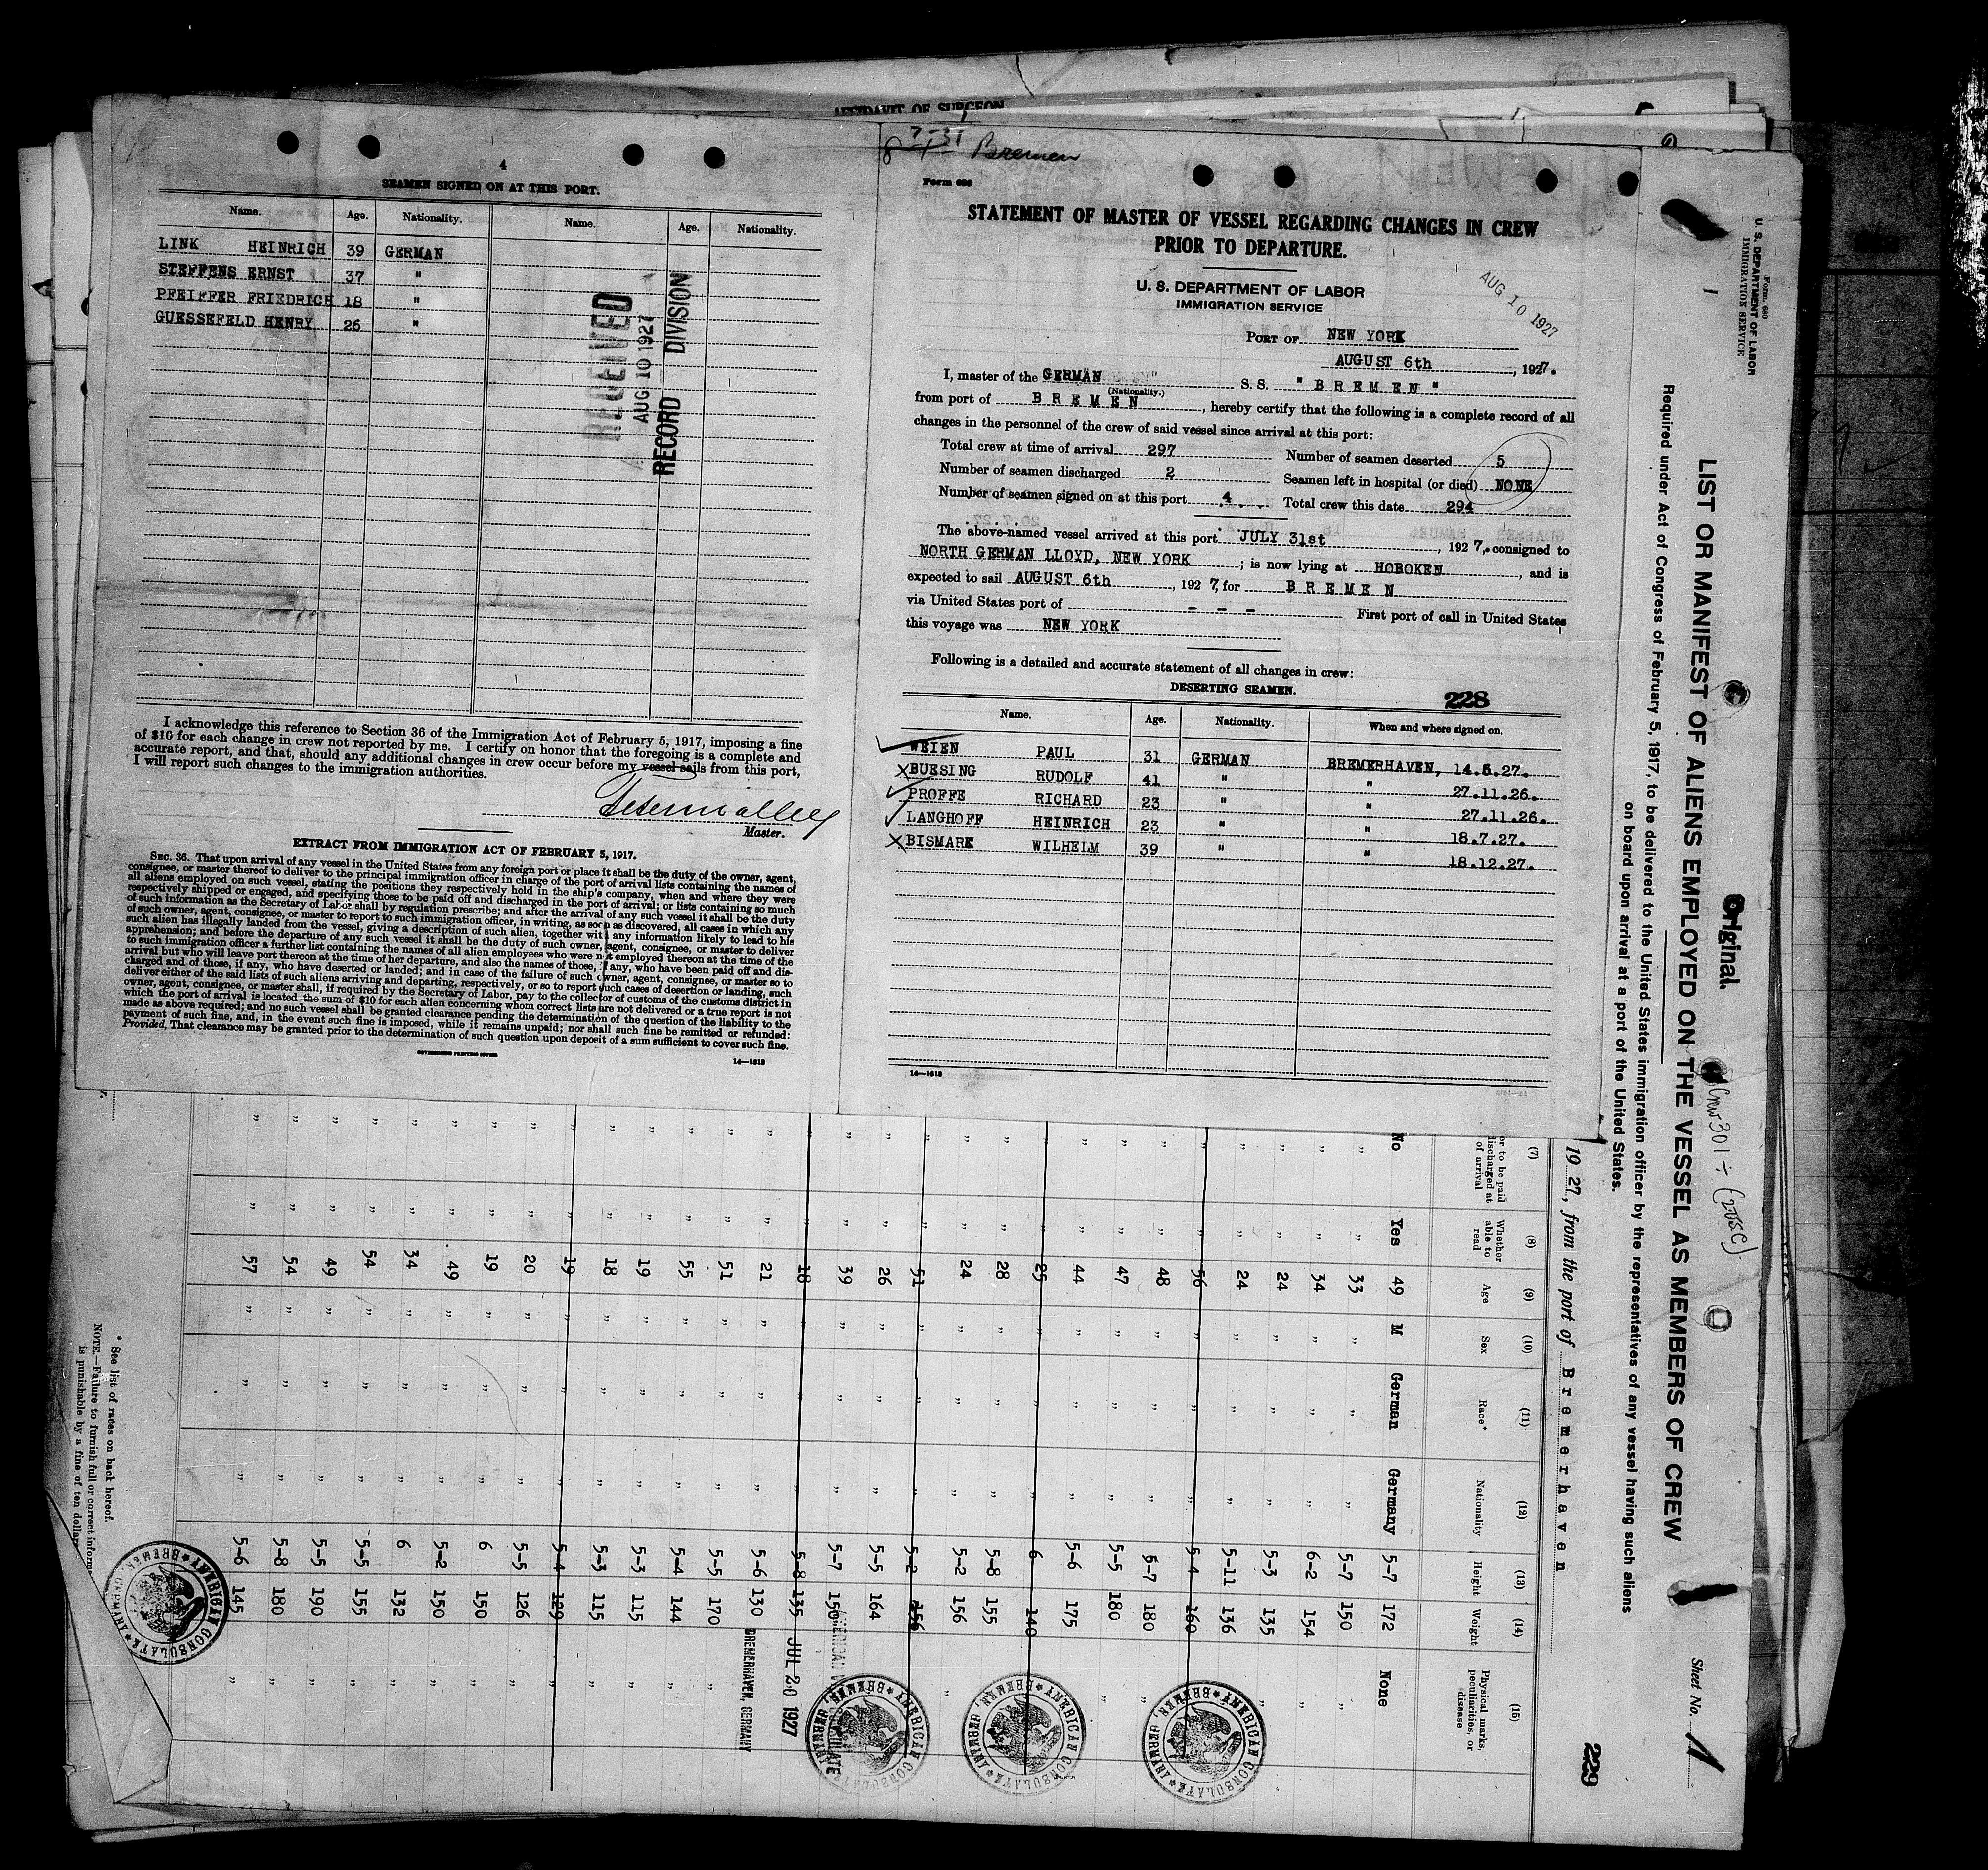 AFFIDAVIT OF SURGEON
4
SEAMEN SIGNED ON AT THIS PORT.
Name. Age. Nationality. Name. Age. Nationality.
LINK HEINRICH 39 GERMAN
STEFFENS ERNST 37 "
PFEIFFER FRIEDRICH 18 "
GUESSEFELD HENRY 26 "
RECEIVED
AUG 10 1927
RECORD DIVISION
I acknowledge this reference to Section 36 of the Immigration Act of February 5, 1917, imposing a fine
of $10 for each change in crew not reported by me. I certify on honor that the foregoing is a complete and
accurate report, and that, should any additional changes in crew occur before my vessel sails from this port,
I will report such changes to the immigration authorities.
Master.
EXTRACT FROM IMMIGRATION ACT OF FEBRUARY 5, 1917.
SEC. 36. That upon arrival of any vessel in the United States from any foreign port or place it shall be the duty of the owner, agent,
consignee, or master thereof to deliver to the principal immigration officer in charge of the port of arrival lists containing the names of
all aliens employed on such vessel, stating the positions they respectively hold in the ship's company, when and where they were
respectively shipped or engaged, and specifying those to be paid off and discharged in the port of arrival; or lists containing so much
of such information as the Secretary of Labor shall by regulation prescribe; and after the arrival of any such vessel it shall be the duty
of such owner, agent, consignee, or master to report to such immigration officer, in writing, as soon as discovered, all cases in which any
such alien has illegally landed from the vessel, giving a description of such alien, together with any information likely to lead to his
apprehension; and before the departure of any such vessel it shall be the duty of such owner, agent, consignee, or master to deliver
to such immigration officer a further list containing the names of all alien employees who were not employed thereon at the time of the
arrival but who will leave port thereon at the time of her departure, and also the names of those, if any, who have been paid off and dis-
charged and of those, if any, who have deserted or landed; and in case of the failure of such owner, agent, consignee, or master so to
deliver either of the said lists of such aliens arriving and departing, respectively, or so to report such cases of desertion or landing, such
owner, agent, consignee, or master shall, if required by the Secretary of Labor, pay to the collector of customs of the customs district in
which the port of arrival is located the sum of $10 for each alien concerning whom correct lists are not delivered or a true report is not
made as above required; and no such vessel shall be granted clearance pending the determination of the question of the liability to the
payment of such fine, and, in the event such fine is imposed, while it remains unpaid; nor shall such fine be remitted or refunded:
Provided, That clearance may be granted prior to the determination of such question upon deposit of a sum sufficient to cover such fine.
GOVERNMENT PRINTING OFFICE
14—1613
7-31
Bremen
Form 689
STATEMENT OF MASTER OF VESSEL REGARDING CHANGES IN CREW
PRIOR TO DEPARTURE.
U. S. DEPARTMENT OF LABOR
IMMIGRATION SERVICE
AUG 10 1927
PORT OF NEW YORK
AUGUST 6th, 1927.
I, master of the GERMAN S. S. "BREMEN"
(Nationality.)
from port of BREMEN, hereby certify that the following is a complete record of all
changes in the personnel of the crew of said vessel since arrival at this port:
Total crew at time of arrival 297 Number of seamen deserted 5
Number of seamen discharged 2 Seamen left in hospital (or died) NONE
Number of seamen signed on at this port 4 Total crew this date 294
The above-named vessel arrived at this port JULY 31st, 1927, consigned to
NORTH GERMAN LLOYD, NEW YORK; is now lying at HOBOKEN, and is
expected to sail AUGUST 6th, 1927, for BREMEN
via United States port of - - - First port of call in United States
this voyage was NEW YORK
Following is a detailed and accurate statement of all changes in crew:
DESERTING SEAMEN. 228
Name. Age. Nationality. When and where signed on.
WEIEN PAUL 31 GERMAN BREMERHAVEN, 14.5.27.
X BUESING RUDOLF 41 " " 27.11.26.
PROFFE RICHARD 23 " " 27.11.26.
LANGHOFF HEINRICH 23 " " 18.7.27.
X BISMARK WILHELM 39 " " 18.12.27.
14—1613
Form 680
U. S. DEPARTMENT OF LABOR
IMMIGRATION SERVICE
Original.
Crew 301
LIST OR MANIFEST OF ALIENS EMPLOYED ON THE VESSEL AS MEMBERS OF CREW
Required under Act of Congress of February 5, 1917, to be delivered to the United States immigration officer by the representatives of any vessel having such aliens
on board upon arrival at a port of the United States.
Sheet No. 1
229
1927, from the port of Bremerhaven
(7) (8) (9) (10) (11) (12) (13) (14) (15)
er to be paid discharged at of arrival Whether able to read Age Sex Race* Nationality Height Weight Physical marks, peculiarities, or disease
No Yes 49 M German Germany 5-7 172 None
" " 33 " " " 5-7 150 "
" " 34 " " " 6-2 154 "
" " 24 " " " 5-3 135 "
" " 24 " " " 5-11 136
" " 56 " " " 5-4 160
" " 48 " " " 5-7 180 "
" " 47 " " " 5-5 180 "
" " 44 " " " 5-6 175
" " 25 " " " 6 140
" " 28 " " " 5-8 155
" " 24 " " " 5-2 156 "
" " 51 " " " 5-2 156
" " 26 " " " 5-5 164
" " 39 " " " 5-7 150
" " 18 " " " 5-8 135
" " 21 " " " 5-6 130
" " 51 " " " 5-5 170 "
" " 55 " " " 5-4 144 "
" " 19 " " " 5-3 115 "
" " 18 " " " 5-3 115 "
" " 19 " " " 5-4 129 "
" " 20 " " " 5-5 126 "
" " 19 " " " 6 150 "
" " 49 " " " 5-2 150 "
" " 34 " " " 6 132 "
" " 54 " " " 5-5 155 "
" " 49 " " " 5-5 190 "
" " 54 " " " 5-8 180 "
" " 57 " " " 5-6 145 "
JUL 20 1927
BREMERHAVEN, GERMANY
AMERICAN CONSULATE BREMEN, GERMANY
AMERICAN CONSULATE BREMEN, GERMANY
AMERICAN CONSULATE BREMEN, GERMANY
AMERICAN CONSULATE BREMEN, GERMANY
* See list of races on back hereof.
NOTE.—Failure to furnish full or correct inform
is punishable by a fine of ten dollars